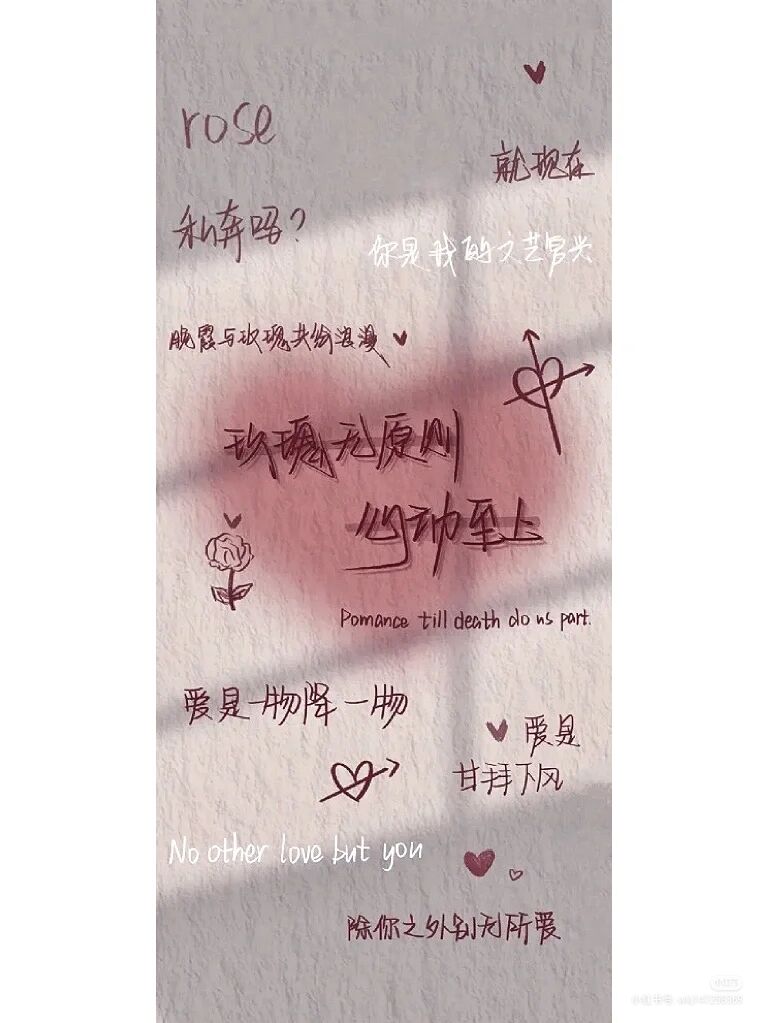 rose
就现在
私奔吗?
你是我的文艺复兴
晚霞与玫瑰共绘浪漫
玫瑰无原则
心动至上
Pomance till death do us part.
爱是一物降一物
爱是
甘拜下风
No other love but you
除你之外别无所爱
小红书